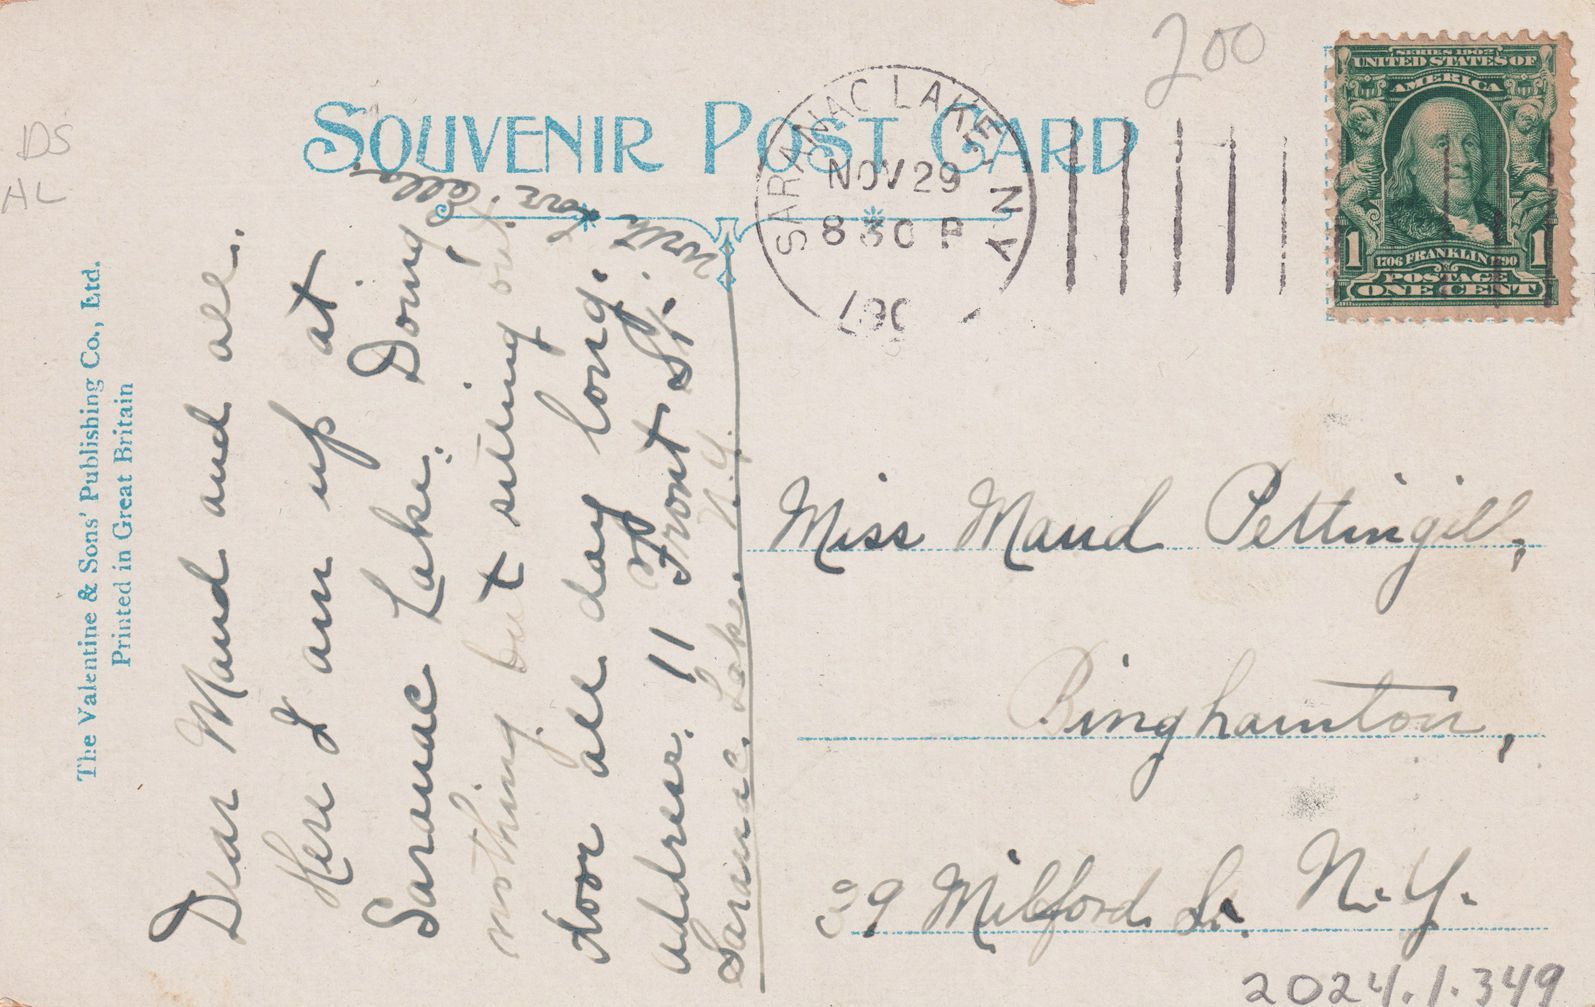 200
DS
AL
SOUVENIR POST CARD
SARANAC LAKE, N.Y.
NOV 29
8 30 P
190
SERIES 1902
UNITED STATES OF
AMERICA
1 1706 FRANKLIN 1790 1
POSTAGE
ONE CENT
The Valentine & Sons' Publishing Co., Ltd.
Printed in Great Britain
Dear Maud and all.
Here I am up at
Saranac Lake. Doing
nothing but sitting out
door all day long.
address. 11 Front St.
Saranac Lake N.Y.
with love
Miss Maud Pettingill,
Binghamton,
39 Milford St. N.Y.
2024.1.349